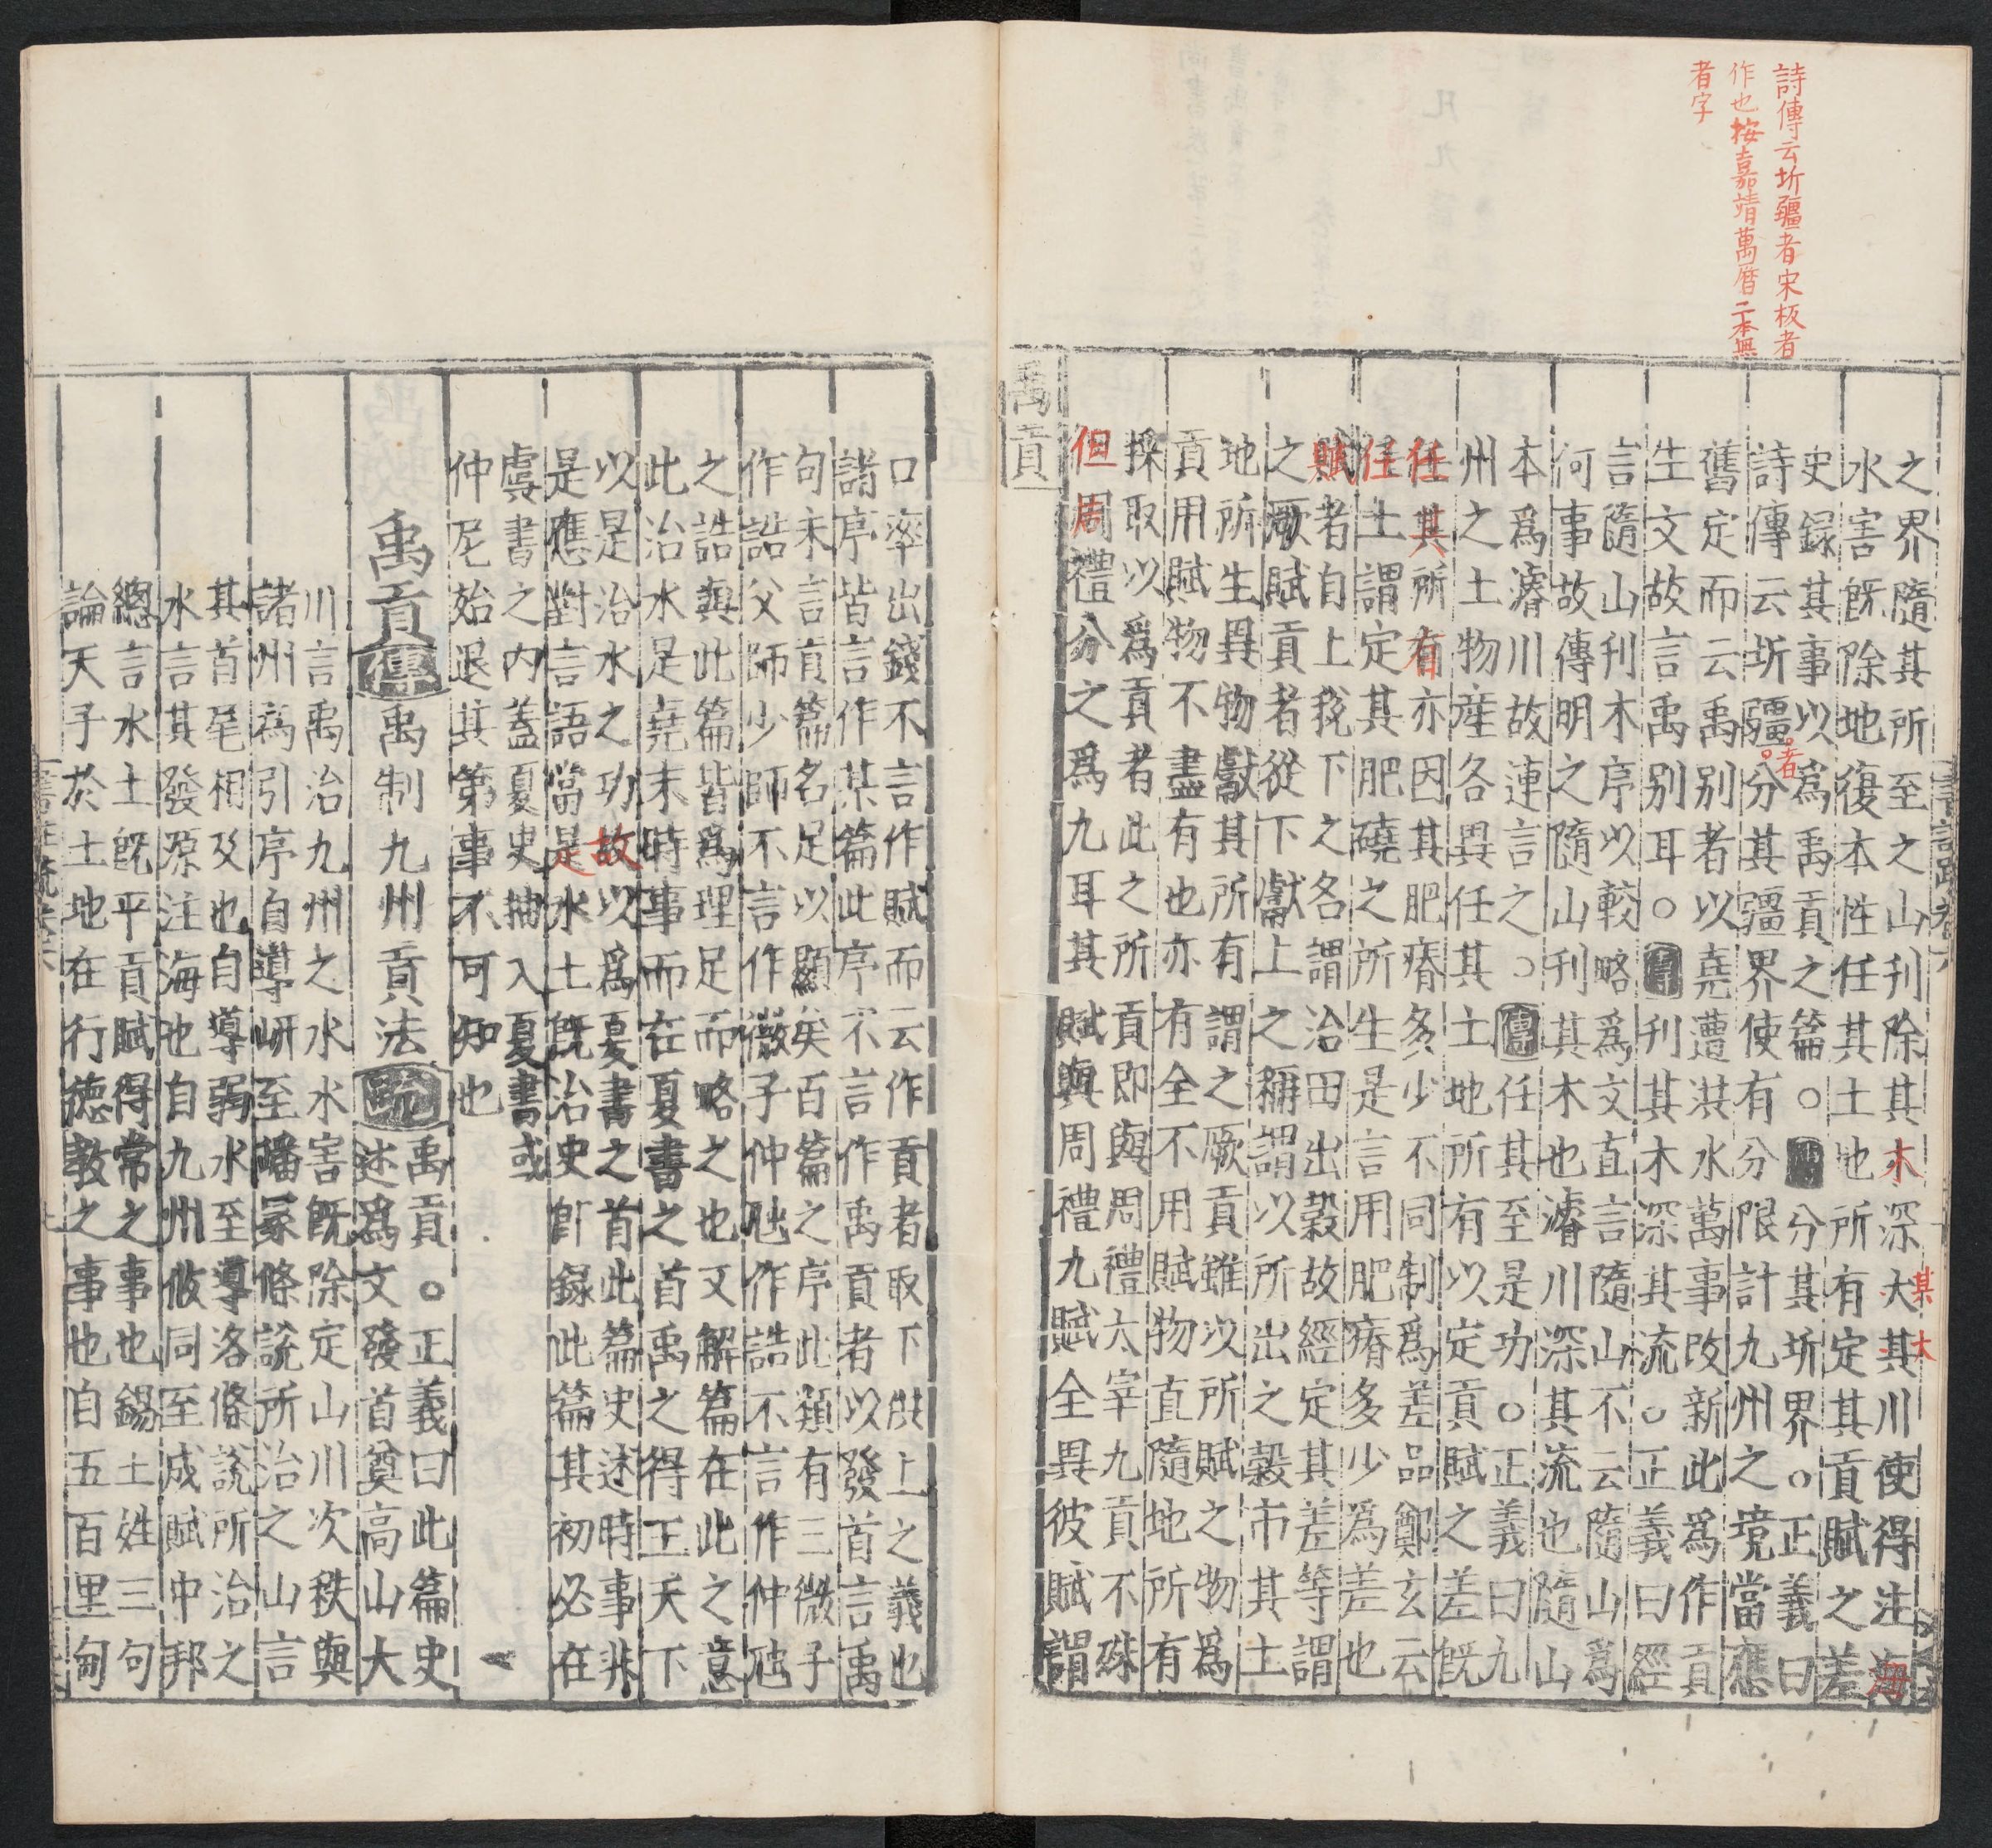 詩傳云圻疆者宋板者
作也按嘉靖萬曆二本無
者字
之界隨其所至之山刊除其木深大其川使得注海
某
大
水害既除地復本性任其土地所有定其貢賦之差
史録其事以爲禹貢之篇○傳分其圻界○正義曰
詩傳云圻疆者分其疆界使有分限計九州之境當應
舊定而云禹別者以堯遭洪水萬事改新此爲作貢
生文故言禹别耳○刊其木深其流○正義曰經
言隨山刊木序以較略爲文直言隨山不云隨山爲
何事故傳明之隨山刊其木也濬川深其流也隨山
本爲濬川故連言之○傳任其至是功○正義曰九
州之土物産各異任其土地所有以定貢賦之差既
任其所有亦因其肥瘠多少不同制爲差品鄭玄云
任土謂定其肥磽之所生是言用肥瘠多少爲差也
賦者自上稅下之各謂治田出穀故經定其差等謂
之厥賦貢者從下獻上之稱謂以所出之穀市其土
地所生異物獻其所有謂之厥貢雖以所賦之物爲
貢用賦物不盡有也亦有全不用賦物直隨地所有
採取以爲貢者此之所貢即與周禮太宰九貢不殊
但周禮分之爲九耳其賦與周禮九賦全異彼賦謂
禹貢
口率出錢不言作賦而云作貢者取下供上之義也
諸序皆言作某篇此序不言作禹貢者以發首言禹
句末言貢篇名足以顯矣百篇之序此類有三微子
作誥父師少師不言作微子仲虺作誥不言作仲虺
之誥與此篇皆爲理足而略之也又解篇在此之意
此治水是堯末時事而在夏書之首禹之得王天下
以是治水之功故以爲夏書之首此篇史述時事非
是應對言語當是水土既治史即録此篇其初必在
虞書之内蓋夏史抽入夏書或
仲尼始退其第事不可知也
禹貢傳禹制九州貢法疏禹貢○正義曰此篇史
述爲文發首奠高山大
川言禹治九州之水水害既除定山川次秩與
諸州爲引序自導岍至嶓冢條說所治之山言
其首尾相及也自導弱水至導洛條說所治之
水言其發源注海也自九州攸同至成賦中邦
總言水土既平貢賦得常之事也錫土姓三句
論天子於土地在行德教之事也自五百里甸